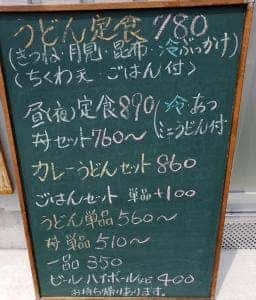 うどん定食 780
(きつね・月見・昆布・冷ぶっかけ)
(ちくわ天・ごはん付)
昼(夜)定食890 冷・あつ
丼セット760〜 (ミニうどん付)
カレーうどんセット 860
ごはんセット 単品+100
うどん単品560〜
丼 単品510〜
一品 350
ビール ハイボールなど 400
お持ち帰りあります。